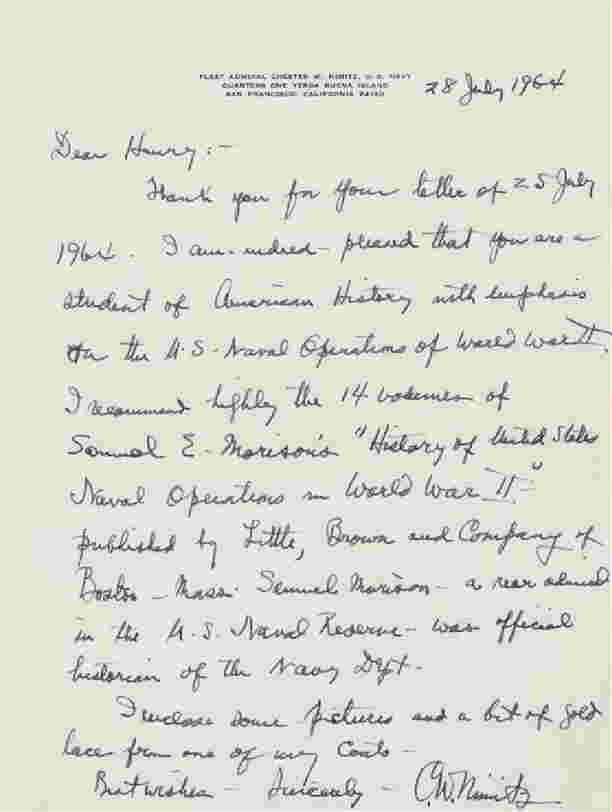 FLEET ADMIRAL CHESTER W. NIMITZ, U.S. NAVY
QUARTERS ONE YERBA BUENA ISLAND
SAN FRANCISCO CALIFORNIA
28 July 1964
Dear Henry:-
Thank you for your letter of 25 July
1964. I am indeed pleased that you are a
student of American History with emphasis
on the U.S. Naval Operations of World War II.
I recommend highly the 14 volumes of
Samuel E. Morison's "History of United States
Naval Operations in World War II"
published by Little, Brown and Company of
Boston - Mass. Samuel Morison - a rear admiral
in the U.S. Naval Reserve - was official
historian of the Navy Dept.
I enclose some pictures and a bit of gold
lace from one of my Coats -
Best wishes - Sincerely - C.W. Nimitz